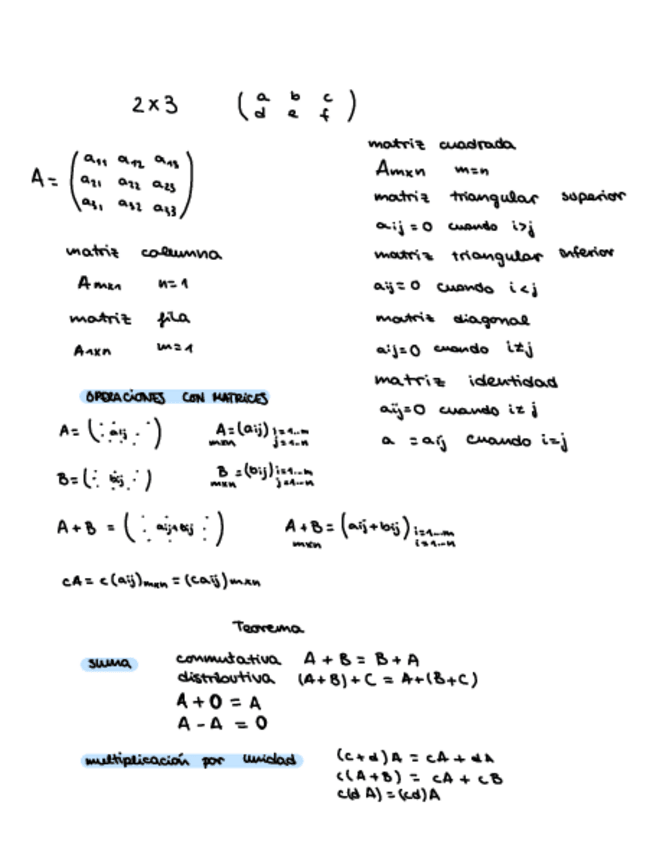 2x3 ( a b c
d e f )
A = ( a11 a12 a13
a21 a22 a23
a31 a32 a33 )
matriz columna
Amxn n=1
matriz fila
A1xn m=1
matriz cuadrada
Amxn m=n
matriz triangular superior
aij = 0 cuando i>j
matriz triangular inferior
aij = 0 cuando i<j
matriz diagonal
aij=0 cuando i≠j
matriz identidad
aij=0 cuando i≠j
a = aij cuando i=j
OPERACIONES CON MATRICES
A = (⋱ aij ⋱) A = (aij) i=1...m
mxn j=1...n
B = (⋱ bij ⋱) B = (bij) i=1...m
mxn j=1...n
A + B = (⋱ aij+bij ⋱) A + B = (aij + bij) i=1...m
mxn i=1...n
cA = c(aij)mxn = (caij)mxn
Teorema
suma conmutativa A + B = B + A
distributiva (A+B) + C = A+(B+C)
A + O = A
A - A = O
multiplicación por unidad (c+d)A = cA + dA
c(A+B) = cA + cB
c(dA) = (cd)A